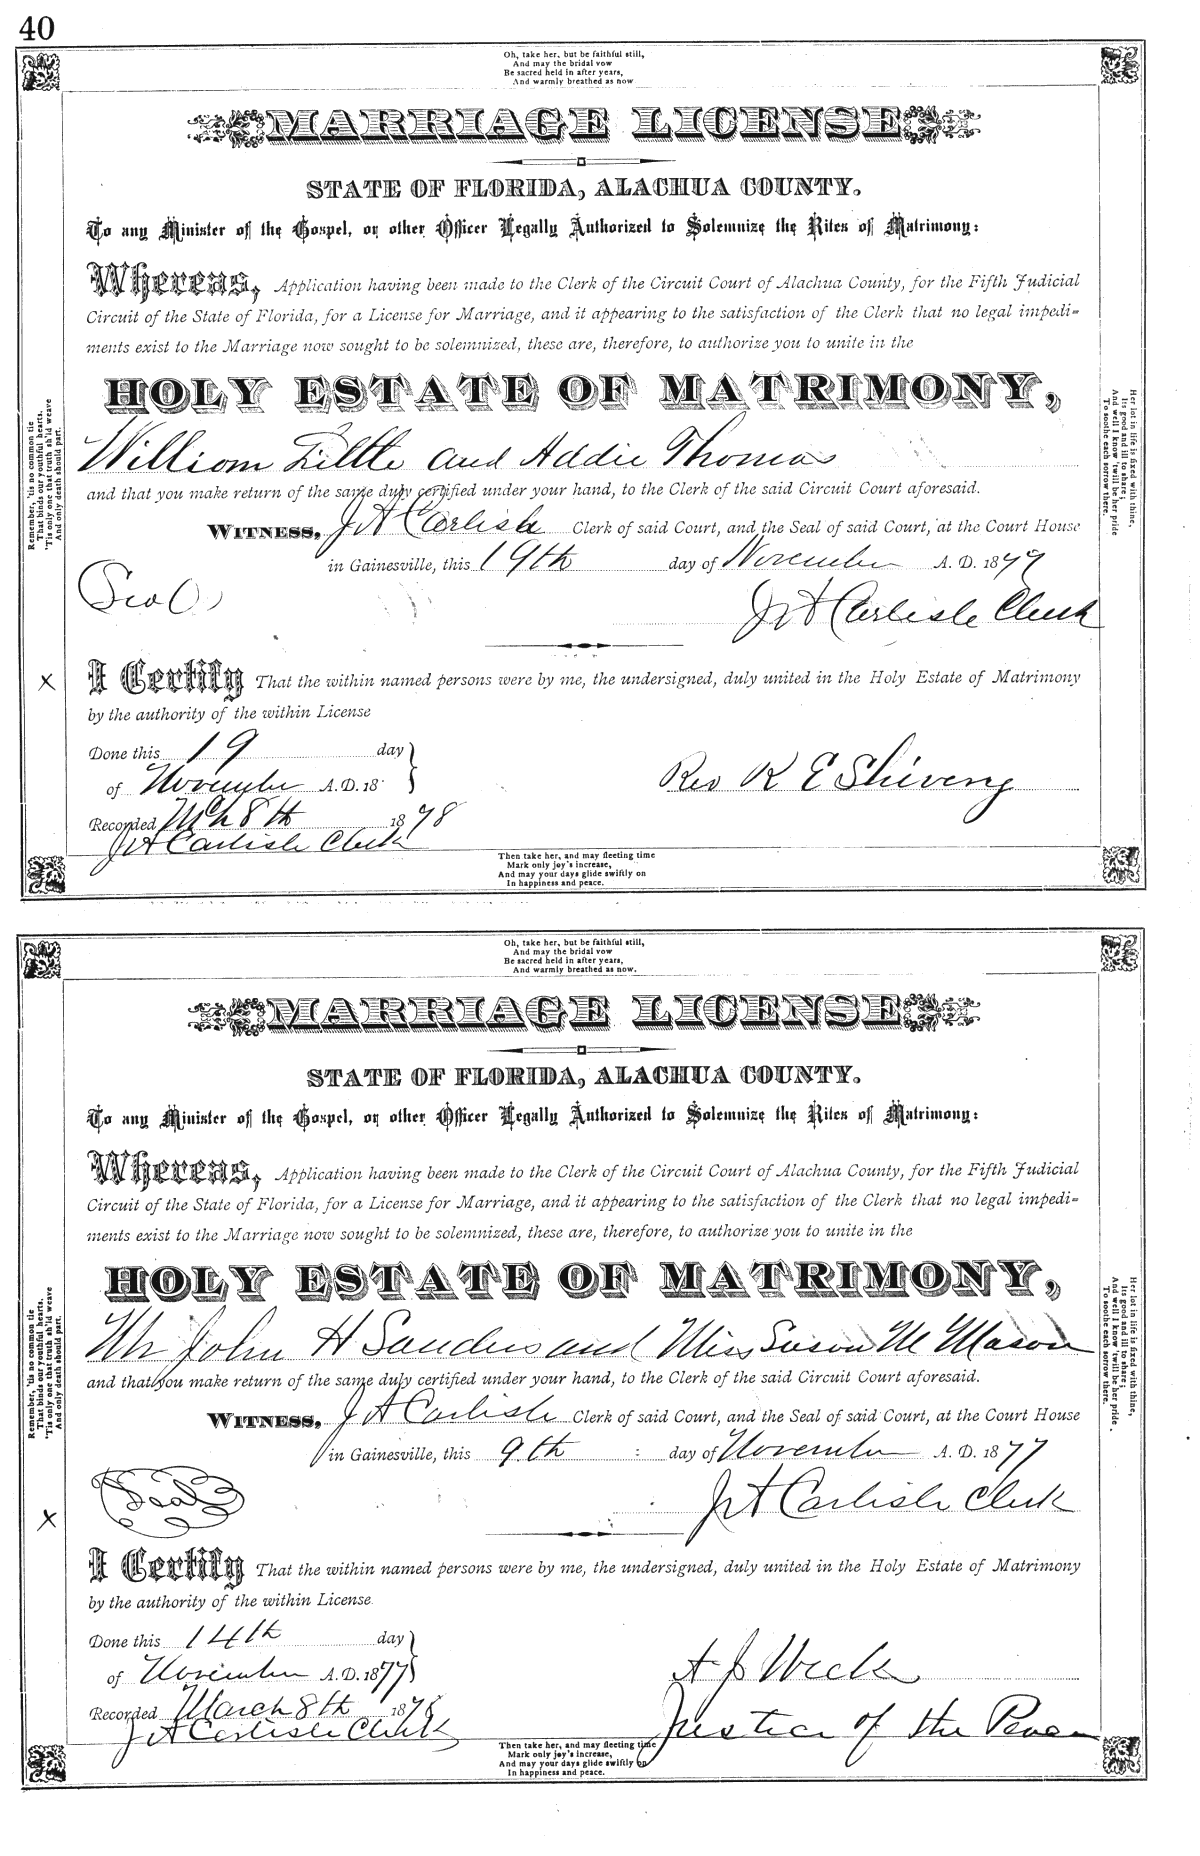 40
Oh, take her, but be faithful still,
And may the bridal vow
Be sacred held in after years,
And warmly breathed as now
MARRIAGE LICENSE
STATE OF FLORIDA, ALACHUA COUNTY.
To any Minister of the Gospel, or other Officer Legally Authorized to Solemnize the Rites of Matrimony:
Whereas, Application having been made to the Clerk of the Circuit Court of Alachua County, for the Fifth Judicial
Circuit of the State of Florida, for a License for Marriage, and it appearing to the satisfaction of the Clerk that no legal impedi=
ments exist to the Marriage now sought to be solemnized, these are, therefore, to authorize you to unite in the
HOLY ESTATE OF MATRIMONY,
William Little and Addie Thomas
and that you make return of the same duly certified under your hand, to the Clerk of the said Circuit Court aforesaid.
WITNESS, J A Carlisle Clerk of said Court, and the Seal of said Court, at the Court House
in Gainesville, this 19th day of November A. D. 1879
Seal
J A Carlisle Clerk
I Certify That the within named persons were by me, the undersigned, duly united in the Holy Estate of Matrimony
by the authority of the within License
Done this 19 day
of November A.D. 18
Rev K E
Recorded Mch 8th 1878
J A Carlisle Clerk
Remember, 'tis no common tie
That binds our youthful hearts.
'Tis only one that truth sh'ld weave
And only death should part.
Her lot in life is fixed with thine,
Its good and ill to share;
And well I know 'twill be her pride
To soothe each sorrow there.
X
Then take her, and may fleeting time
Mark only joy's increase,
And may your days glide swiftly on
In happiness and peace.
Oh, take her, but be faithful still,
And may the bridal vow
Be sacred held in after years,
And warmly breathed as now.
MARRIAGE LICENSE
STATE OF FLORIDA, ALACHUA COUNTY.
To any Minister of the Gospel, or other Officer Legally Authorized to Solemnize the Rites of Matrimony:
Whereas, Application having been made to the Clerk of the Circuit Court of Alachua County, for the Fifth Judicial
Circuit of the State of Florida, for a License for Marriage, and it appearing to the satisfaction of the Clerk that no legal impedi=
ments exist to the Marriage now sought to be solemnized, these are, therefore, to authorize you to unite in the
HOLY ESTATE OF MATRIMONY,
Mr John H Sanders and Miss Susan M Mason
and that you make return of the same duly certified under your hand, to the Clerk of the said Circuit Court aforesaid.
WITNESS, J A Carlisle Clerk of said Court, and the Seal of said Court, at the Court House
in Gainesville, this 9th day of November A. D. 1877
Seal
J A Carlisle Clerk
I Certify That the within named persons were by me, the undersigned, duly united in the Holy Estate of Matrimony
by the authority of the within License
Done this 14th day
of November A.D. 1877
A J Weeks
Recorded March 8th 1878
J A Carlisle Clerk
Justice of the Peace
Remember, 'tis no common tie
That binds our youthful hearts.
'Tis only one that truth sh'ld weave
And only death should part.
Her lot in life is fixed with thine,
Its good and ill to share;
And well I know 'twill be her pride
To soothe each sorrow there.
X
Then take her, and may fleeting time
Mark only joy's increase,
And may your days glide swiftly on
In happiness and peace.